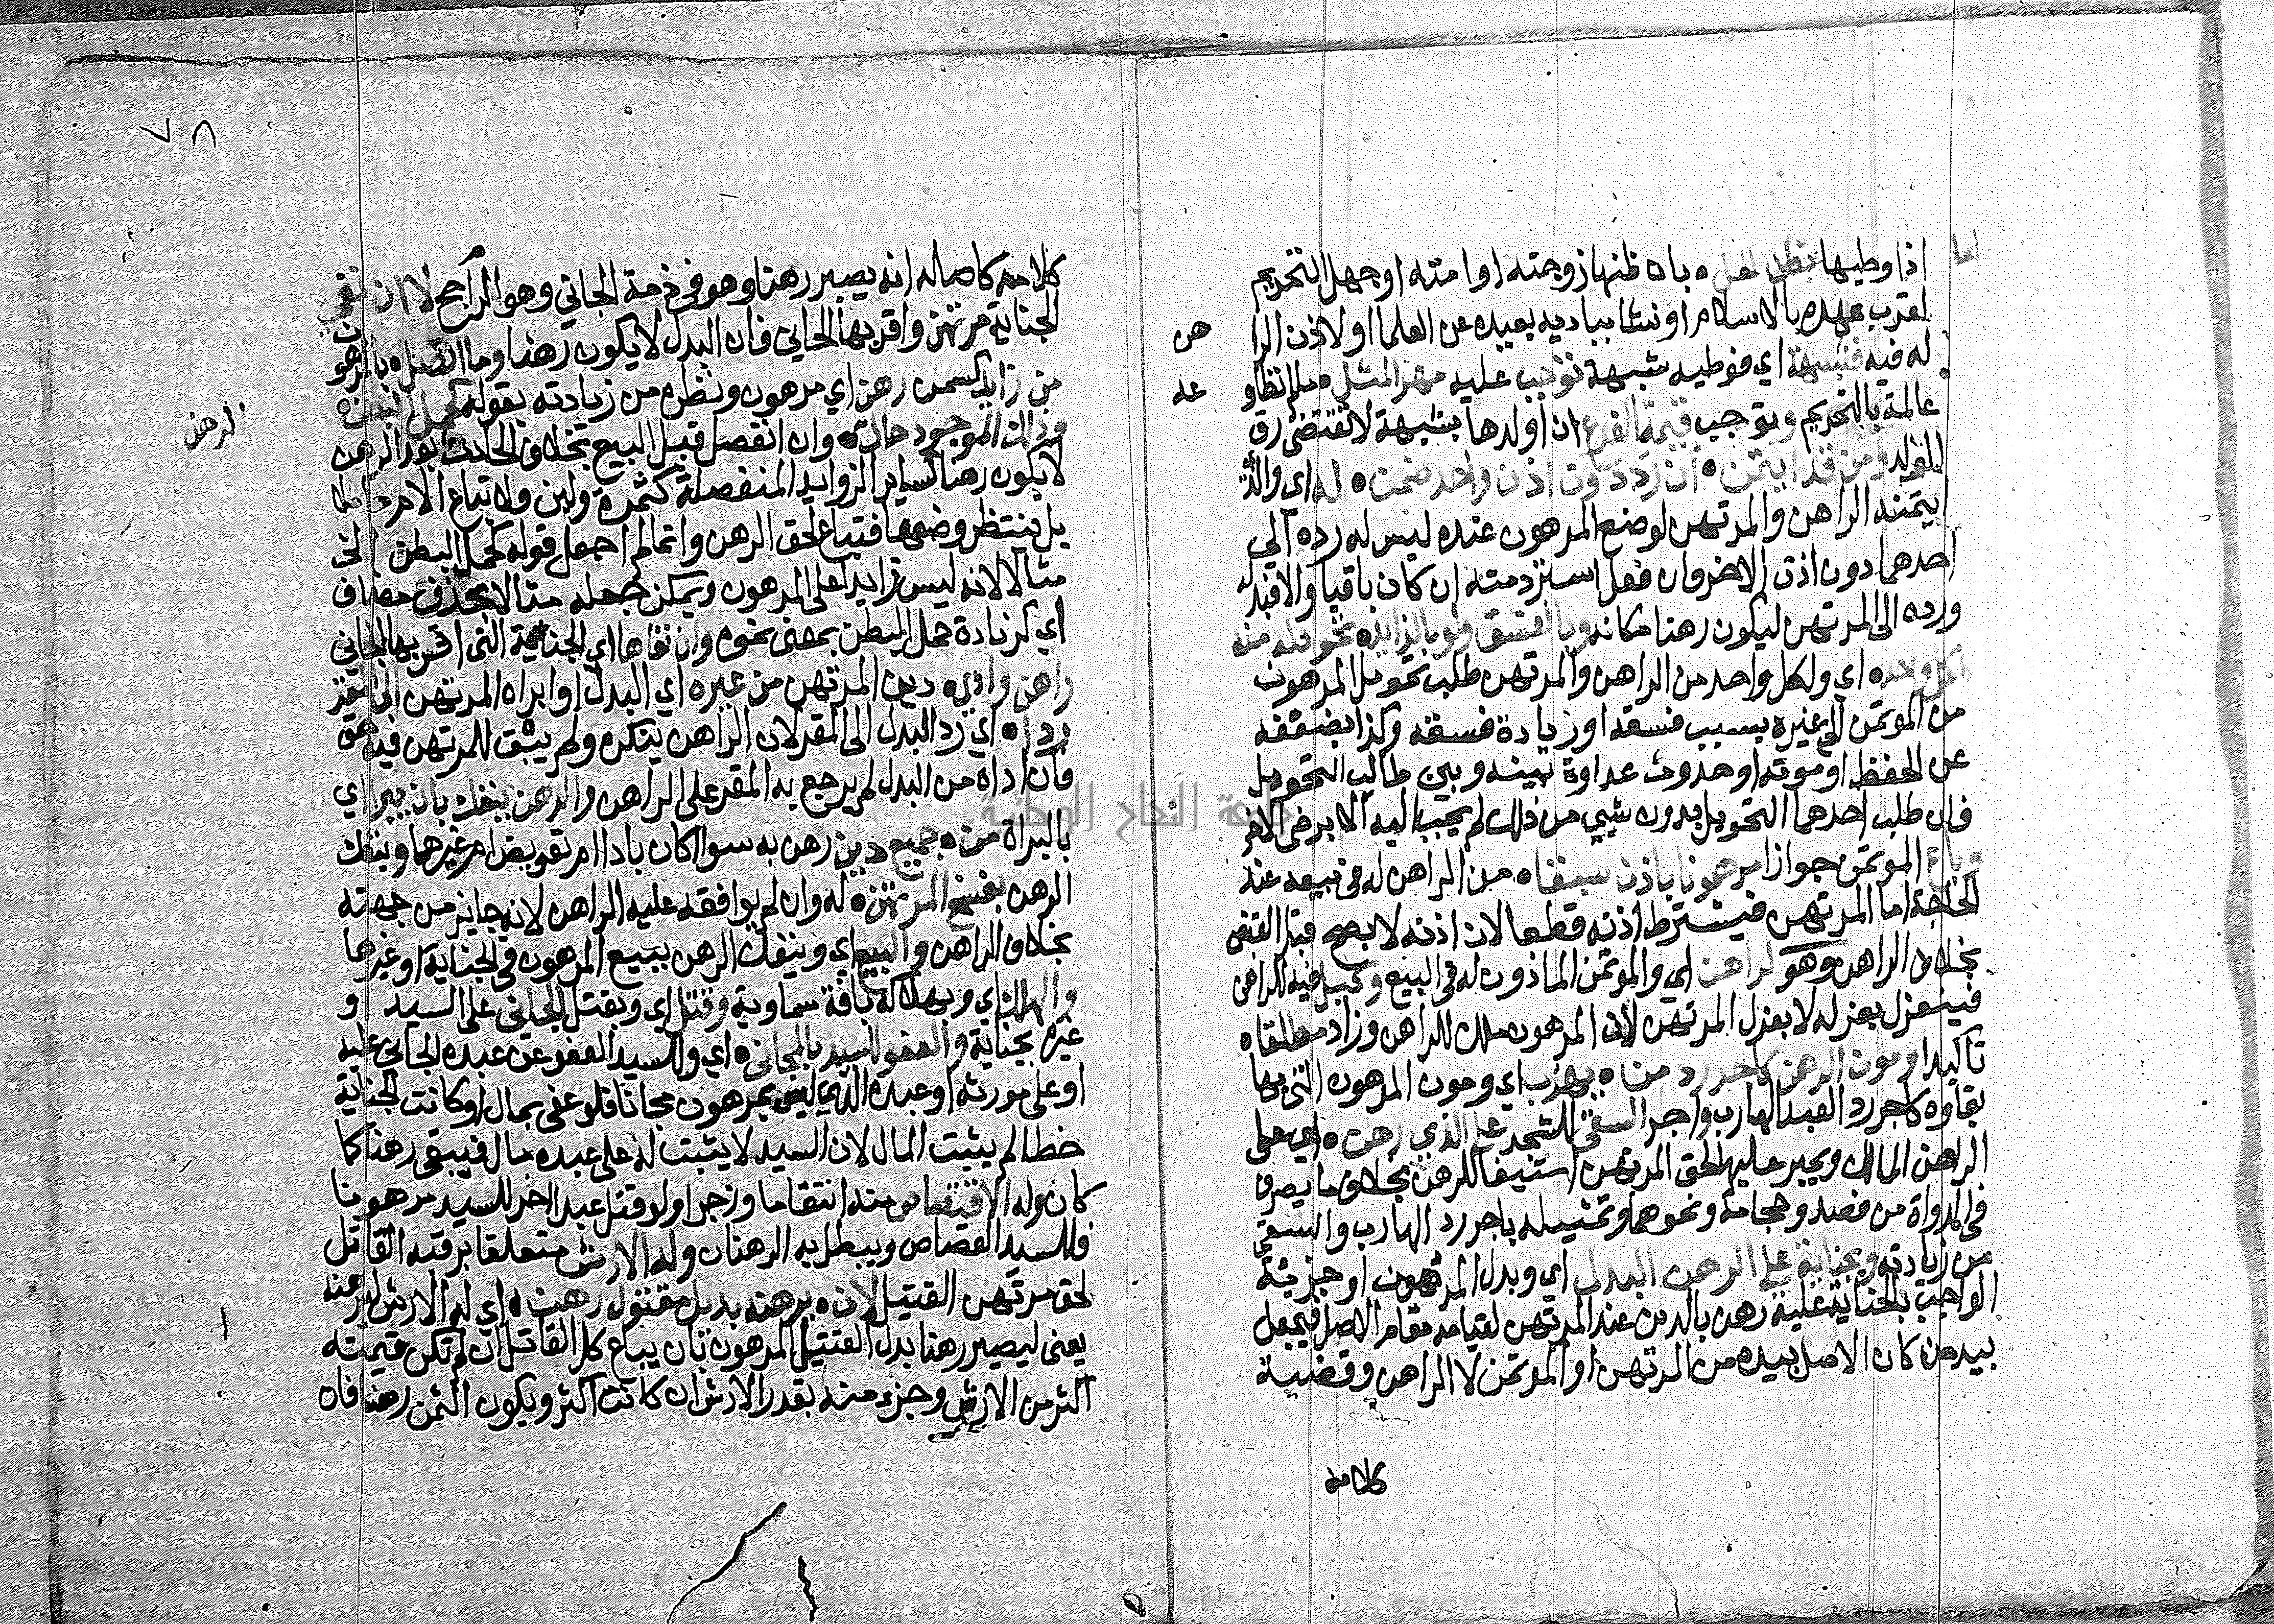 اما
اذا وطيها بظن الحل بان ظنها زوجته او امته او جهل التحريم
لقرب عهده بالاسلام او نشا ببادية بعيده عن العلما او لاذن الرا
هن
له فيه فشبهة اي فوطيه شبهة توجب عليه مهر المثل
عالمة بالتحريم وتوجب قيمة الفرع ان اولدها بشبهة لا تقتضي رق
ومن قد ايتمن ان رد دون اذن واحد ضمن له اي والذي
ايتمنه الراهن والمرتهن لوضع المرهون عنده ليس له رده الي
احدهما دون اذن الاخر وان فعل استرد منه ان كان باقيا والا فبدله
ورده الى المرتهن ليكون رهنا مكانه وبالفسق ولو بالزايده تحويله منه
لكل واحد اي ولكل واحد من الراهن والمرتهن طلب تحويل المرهون
من الموتمن الى غيره بسبب فسقه او زيادة فسقه وكذا بضعفه
عن الحفظ او موته او حدوث عداوة بينه وبين طالب التحويل
فان طلب احدهما التحويل بدون شيي من ذلك لم يجب اليه الا برضى الاخر
وباع الموتمن جوازا مرهونا باذن سبقا من الراهن له في بيعه عند
الحاجة اما المرتهن فيشترط اذنه قطعا لان اذنه لا يصح قبل القبض
بخلاف الراهن وهو لراهن اي والموتمن الماذون له في البيع وكيل فيه للراهن
فينعزل بعزله لا بعزل المرتهن لان المرهون ملك للراهن وزاد مطلقا
تاكيدا ومون الرهن كاجر رد من يهرب اي ومون المرهون التي بها
بقاوه كاجر رد العبد الهارب واجر السقي للشجر على الذي رهن اي على
الراهن المالك ويجبر عليها لحق المرتهن استيفا للرهن بخلاف ما يصرف
في المدواة من فصد وحجامة ونحوهما وتمثيله باجر رد الهارب والسقي
من زيادته وبجناية على الرهن البدل اي وبدل المرهون او جزيئة
الواجب بالجناية عليه رهن بالدين عند المرتهن لقيامه مقام الاصل فيجعل
بيد من كان الاصل بيده من المرتهن او الموتمن لا الراهن وقضية
كلامه
٧٨
الرهن
كلامه كاصله انه يصير رهنا وهو في ذمة الجاني وهو الراجح لا ان نفي
الجناية مرتهن واقر بها الجاني فان البدل لا يكون رهنا وما اتصل بالمرهون
من زايد كسمن رهن اي مرهون ونظره من زيادته بقوله كحمل البطن
وذلك الموجود حالة وان انفصل قبل البيع بخلاف الحادث بعد الرهن
لا يكون رهنا كساير الزوايد المنفصلة كثمرة ولبن ولا تباع الام حاملا
بل ينتظر وضعها فتباع لحق الرهن وانما لم اجعل قوله كحمل البطن الخ
مثالا لانه ليس زايدا على المرهون ويمكن جعله مثالا بحذف مضاف
اي كزيادة حمل البطن بمعنى نموه وان نفاها اي الجناية التي اقر بها الجاني
راهن وادي دين المرتهن من غيره اي البدل او ابراه المرتهن الى المقر
رده اي رد البدل الى المقر لان الراهن ينكره ولم يبق للمرتهن فيه حق
وان اداه من البدل لم يرجع به المقر على الراهن والرهن ينفك بان يبرا اي
بالبراة من جميع دين رهن به سوا اكان بادا ام تعويض ام غيرهما وينفك
الرهن بفسخ المرتهن له وان لم يوافقه عليه الراهن لانه جايز من جهته
بخلاف الراهن والبيع اي وينفك الرهن ببيع المرهون في الجناية او غيرها
والهلك اي وبهلاكه بافة سماوية وقتل اي وبقتل الجاني على السيد و
غيره بجناية والعفو للسيد بالمجاني اي وللسيد العفو عن عبده الجاني عليه
او على مورثه او عبده الذي ليس بمرهون مجانا فلو عفى بمال او كانت الجناية
خطا لم يثبت المال لان السيد لا يثبت له على عبده مال فيبقى رهنا كما
كان وله الاقتصاص منه انتقاما وزجرا ولو قتل عبدا اخر للسيد مرهونا
فللسيد القصاص ويبطل به الرهنان وله الارش متعلقا برقبة القاتل
لحق مرتهن القتيل لان برهنه بدل مقتول رهن اي له الارش ليرهنه
يعني ليصير رهنا بدل القتيل المرهون بان يباع كل القاتل ان لم تكن قيمته
اكثر من الارش وجزء منه بقدر الارش ان كانت اكثر ويكون الثمن رهنا فان
جامعة النجاح الوطنية